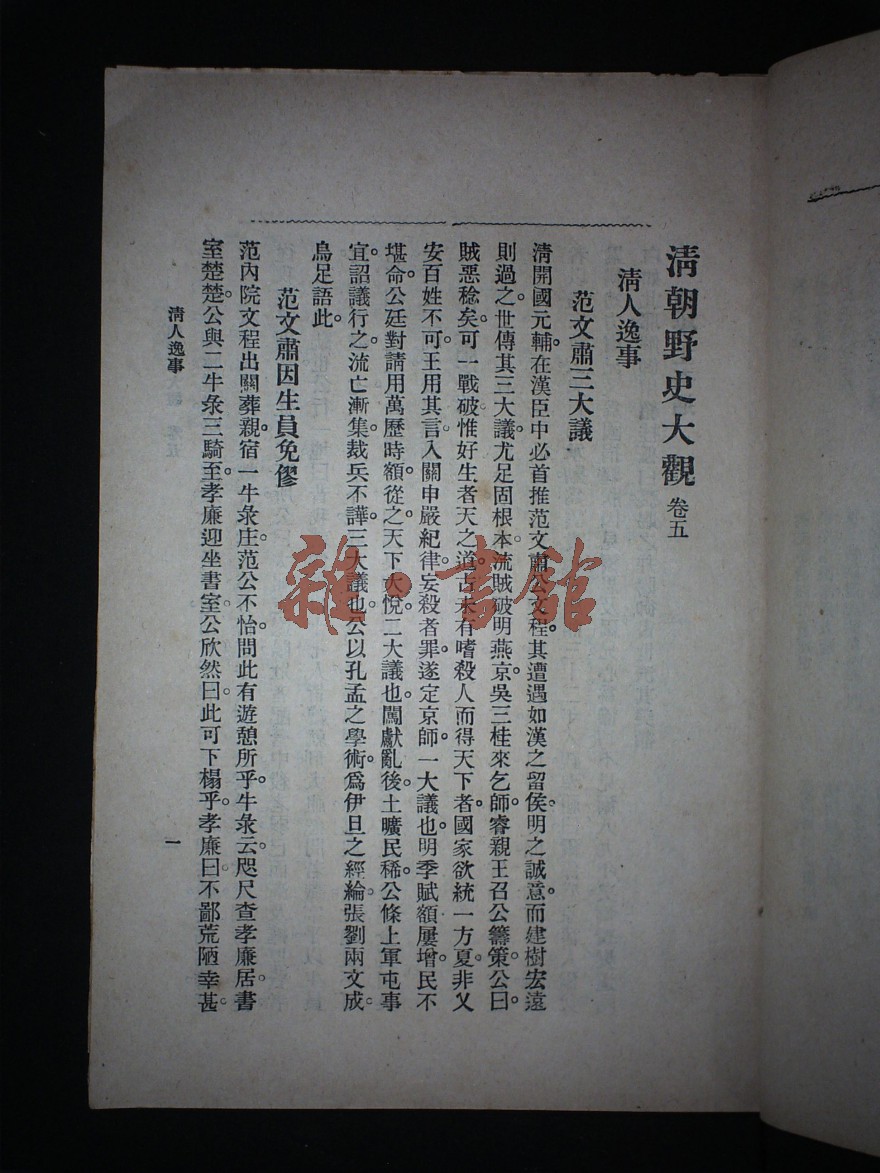 清朝野史大觀 卷五
清人逸事
范文肅三大議
清開國元輔。在漢臣中必首推范文肅公文程。其遭遇如漢之留侯。明之誠意。而建樹宏遠
則過之。世傳其三大議。尤足固根本。流賊破明燕京。吳三桂來乞師。睿親王召公籌策。公曰。
賊惡稔矣。可一戰破。惟好生者天之道。古未有嗜殺人而得天下者。國家欲統一方夏。非乂
安百姓不可。王用其言。入關申嚴紀律。妄殺者罪。遂定京師。一大議也。明季賦額屢增。民不
堪命。公廷對請用萬歷時額。從之。天下大悅。二大議也。闖獻亂後。土曠民稀。公條上軍屯事
宜。詔議行之。流亡漸集。裁兵不譁。三大議也。公以孔孟之學術。爲伊旦之經綸。張劉兩文成
烏足語此。
范文肅因生員免僇
范內院文程出關葬親。宿一牛彔庄。范公不怡。問此有遊憩所乎。牛彔云。咫尺查孝廉居。書
室楚楚。公與二牛彔三騎至。孝廉迎坐書室。公欣然曰。此可下榻乎。孝廉曰。不鄙荒陋。幸甚。
清人逸事
一
雜·書館